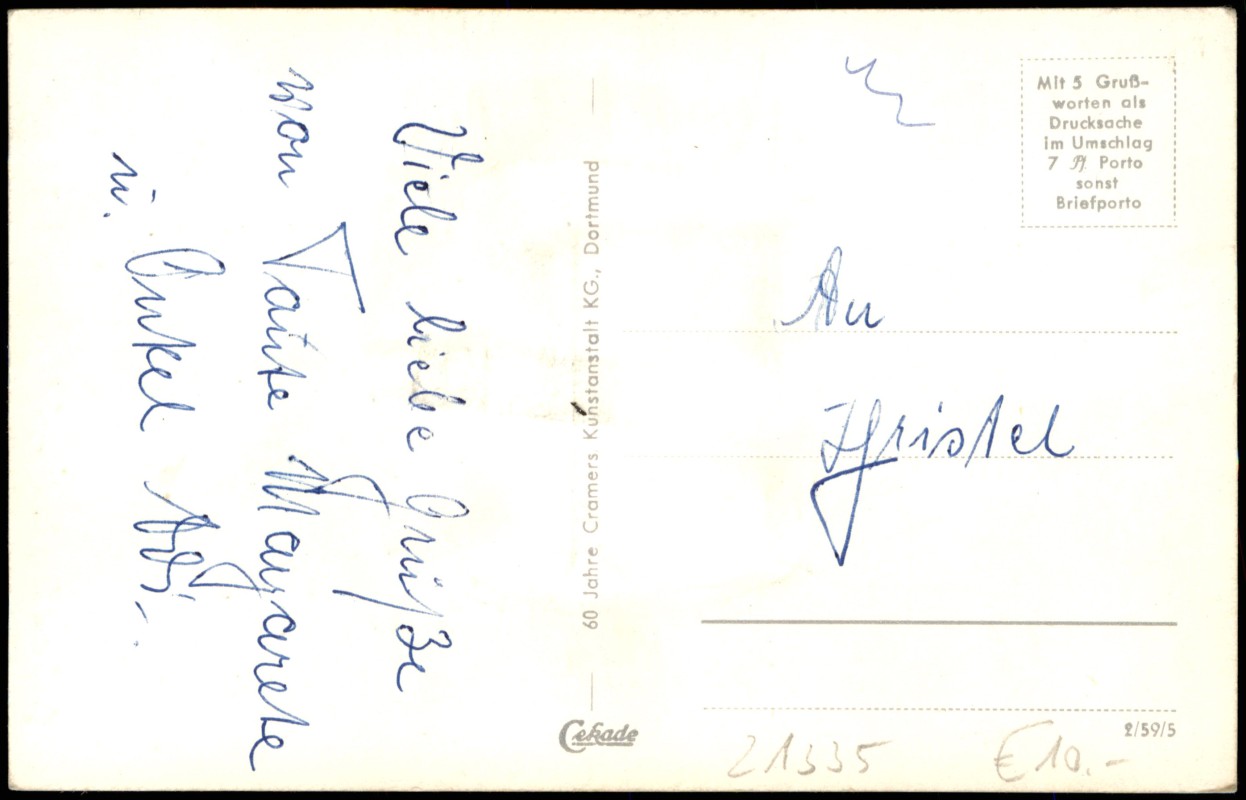 Viele liebe Grüße
von Tante Margarete
u. Onkel
60 Jahre Cramers Kunstanstalt KG., Dortmund
Cekade
Mit 5 Gruß-
worten als
Drucksache
im Umschlag
7 Pf. Porto
sonst
Briefporto
An
2/59/5
21335 €10.-